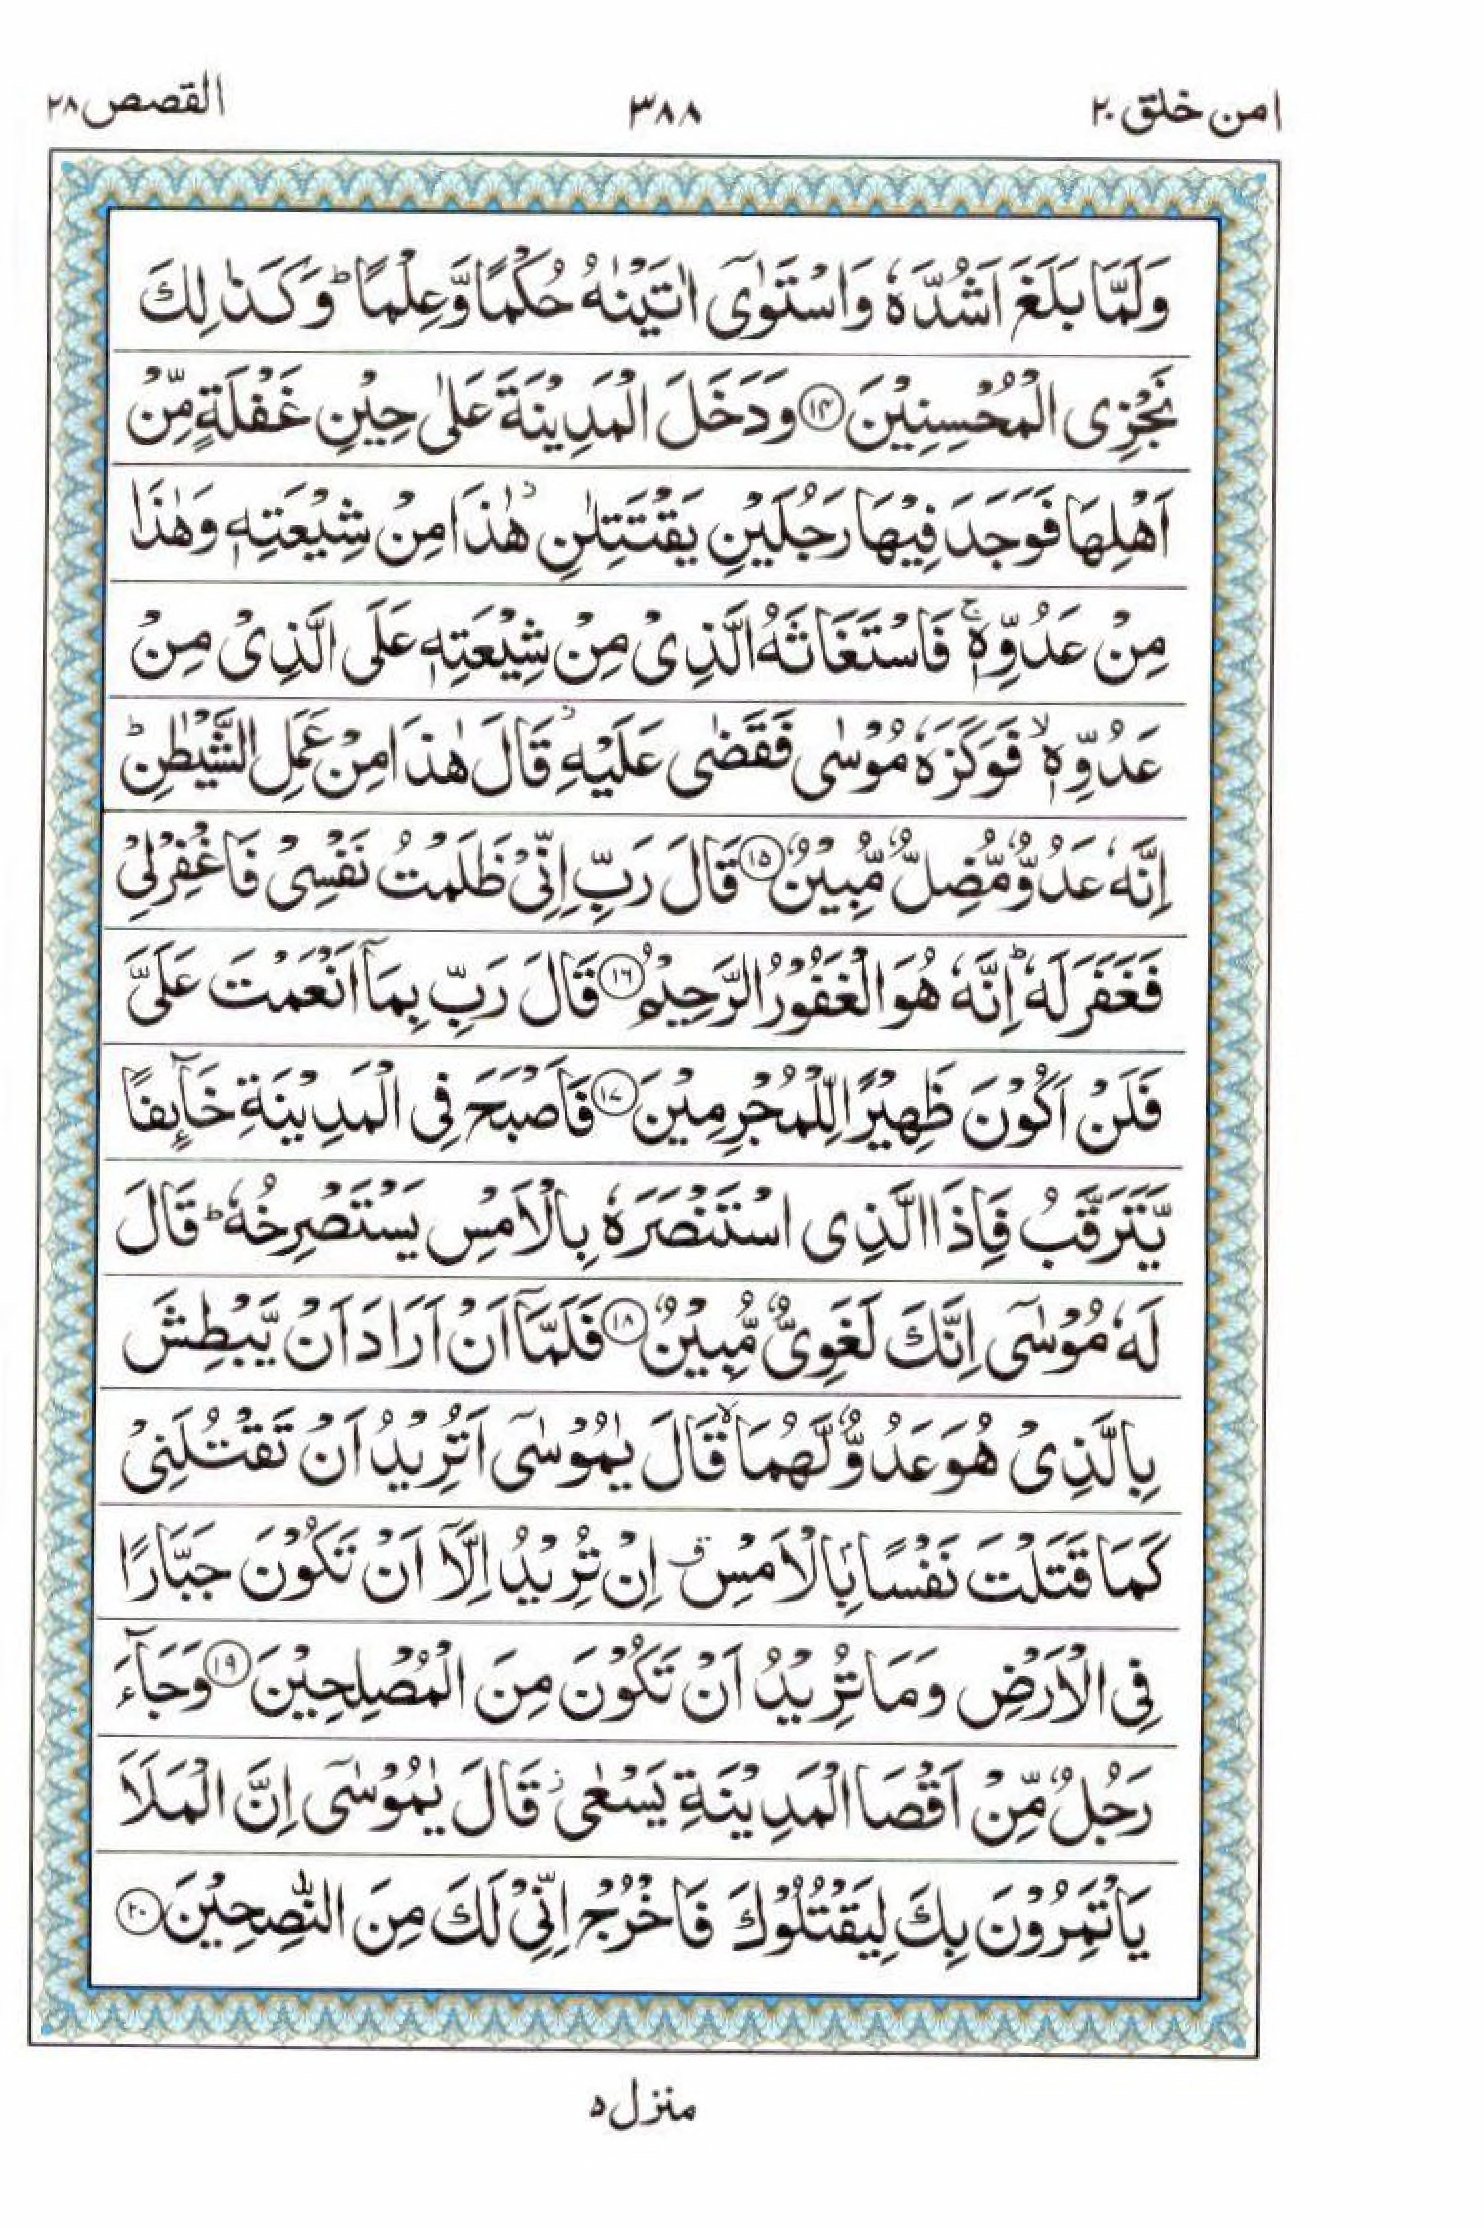 امن خلق ٢٠
٣٨٨
القصص ٢٨
وَلَمَّا بَلَغَ اَشُدَّهٗ وَاسْتَوٰۤى اٰتَيْنٰهُ حُكْمًا وَّعِلْمًا ؕ وَكَذٰلِكَ
نَجْزِى الْمُحْسِنِيْنَ ﴿١٤﴾ وَدَخَلَ الْمَدِيْنَةَ عَلٰى حِيْنِ غَفْلَةٍ مِّنْ
اَهْلِهَا فَوَجَدَ فِيْهَا رَجُلَيْنِ يَقْتَتِلٰنِ ؗ هٰذَا مِنْ شِيْعَتِهٖ وَهٰذَا
مِنْ عَدُوِّهٖ ۚ فَاسْتَغَاثَهُ الَّذِىْ مِنْ شِيْعَتِهٖ عَلَى الَّذِىْ مِنْ
عَدُوِّهٖ ۙ فَوَكَزَهٗ مُوْسٰى فَقَضٰى عَلَيْهِ ؗ قَالَ هٰذَا مِنْ عَمَلِ الشَّيْطٰنِ ؕ
اِنَّهٗ عَدُوٌّ مُّضِلٌّ مُّبِيْنٌ ﴿١٥﴾ قَالَ رَبِّ اِنِّىْ ظَلَمْتُ نَفْسِىْ فَاغْفِرْلِىْ
فَغَفَرَ لَهٗ ؕ اِنَّهٗ هُوَ الْغَفُوْرُ الرَّحِيْمُ ﴿١٦﴾ قَالَ رَبِّ بِمَاۤ اَنْعَمْتَ عَلَىَّ
فَلَنْ اَكُوْنَ ظَهِيْرًا لِّلْمُجْرِمِيْنَ ﴿١٧﴾ فَاَصْبَحَ فِى الْمَدِيْنَةِ خَآئِفًا
يَّتَرَقَّبُ فَاِذَا الَّذِى اسْتَنْصَرَهٗ بِالْاَمْسِ يَسْتَصْرِخُهٗ ؕ قَالَ
لَهٗ مُوْسٰۤى اِنَّكَ لَغَوِىٌّ مُّبِيْنٌ ﴿١٨﴾ فَلَمَّاۤ اَنْ اَرَادَ اَنْ يَّبْطِشَ
بِالَّذِىْ هُوَ عَدُوٌّ لَّهُمَا ۙ قَالَ يٰمُوْسٰۤى اَتُرِيْدُ اَنْ تَقْتُلَنِىْ
كَمَا قَتَلْتَ نَفْسًا ۢ بِالْاَمْسِ ۖ اِنْ تُرِيْدُ اِلَّاۤ اَنْ تَكُوْنَ جَبَّارًا
فِى الْاَرْضِ وَمَا تُرِيْدُ اَنْ تَكُوْنَ مِنَ الْمُصْلِحِيْنَ ﴿١٩﴾ وَجَآءَ
رَجُلٌ مِّنْ اَقْصَا الْمَدِيْنَةِ يَسْعٰى ؗ قَالَ يٰمُوْسٰۤى اِنَّ الْمَلَاَ
يَاْتَمِرُوْنَ بِكَ لِيَقْتُلُوْكَ فَاخْرُجْ اِنِّىْ لَكَ مِنَ النّٰصِحِيْنَ ﴿٢٠﴾
منزل ٥